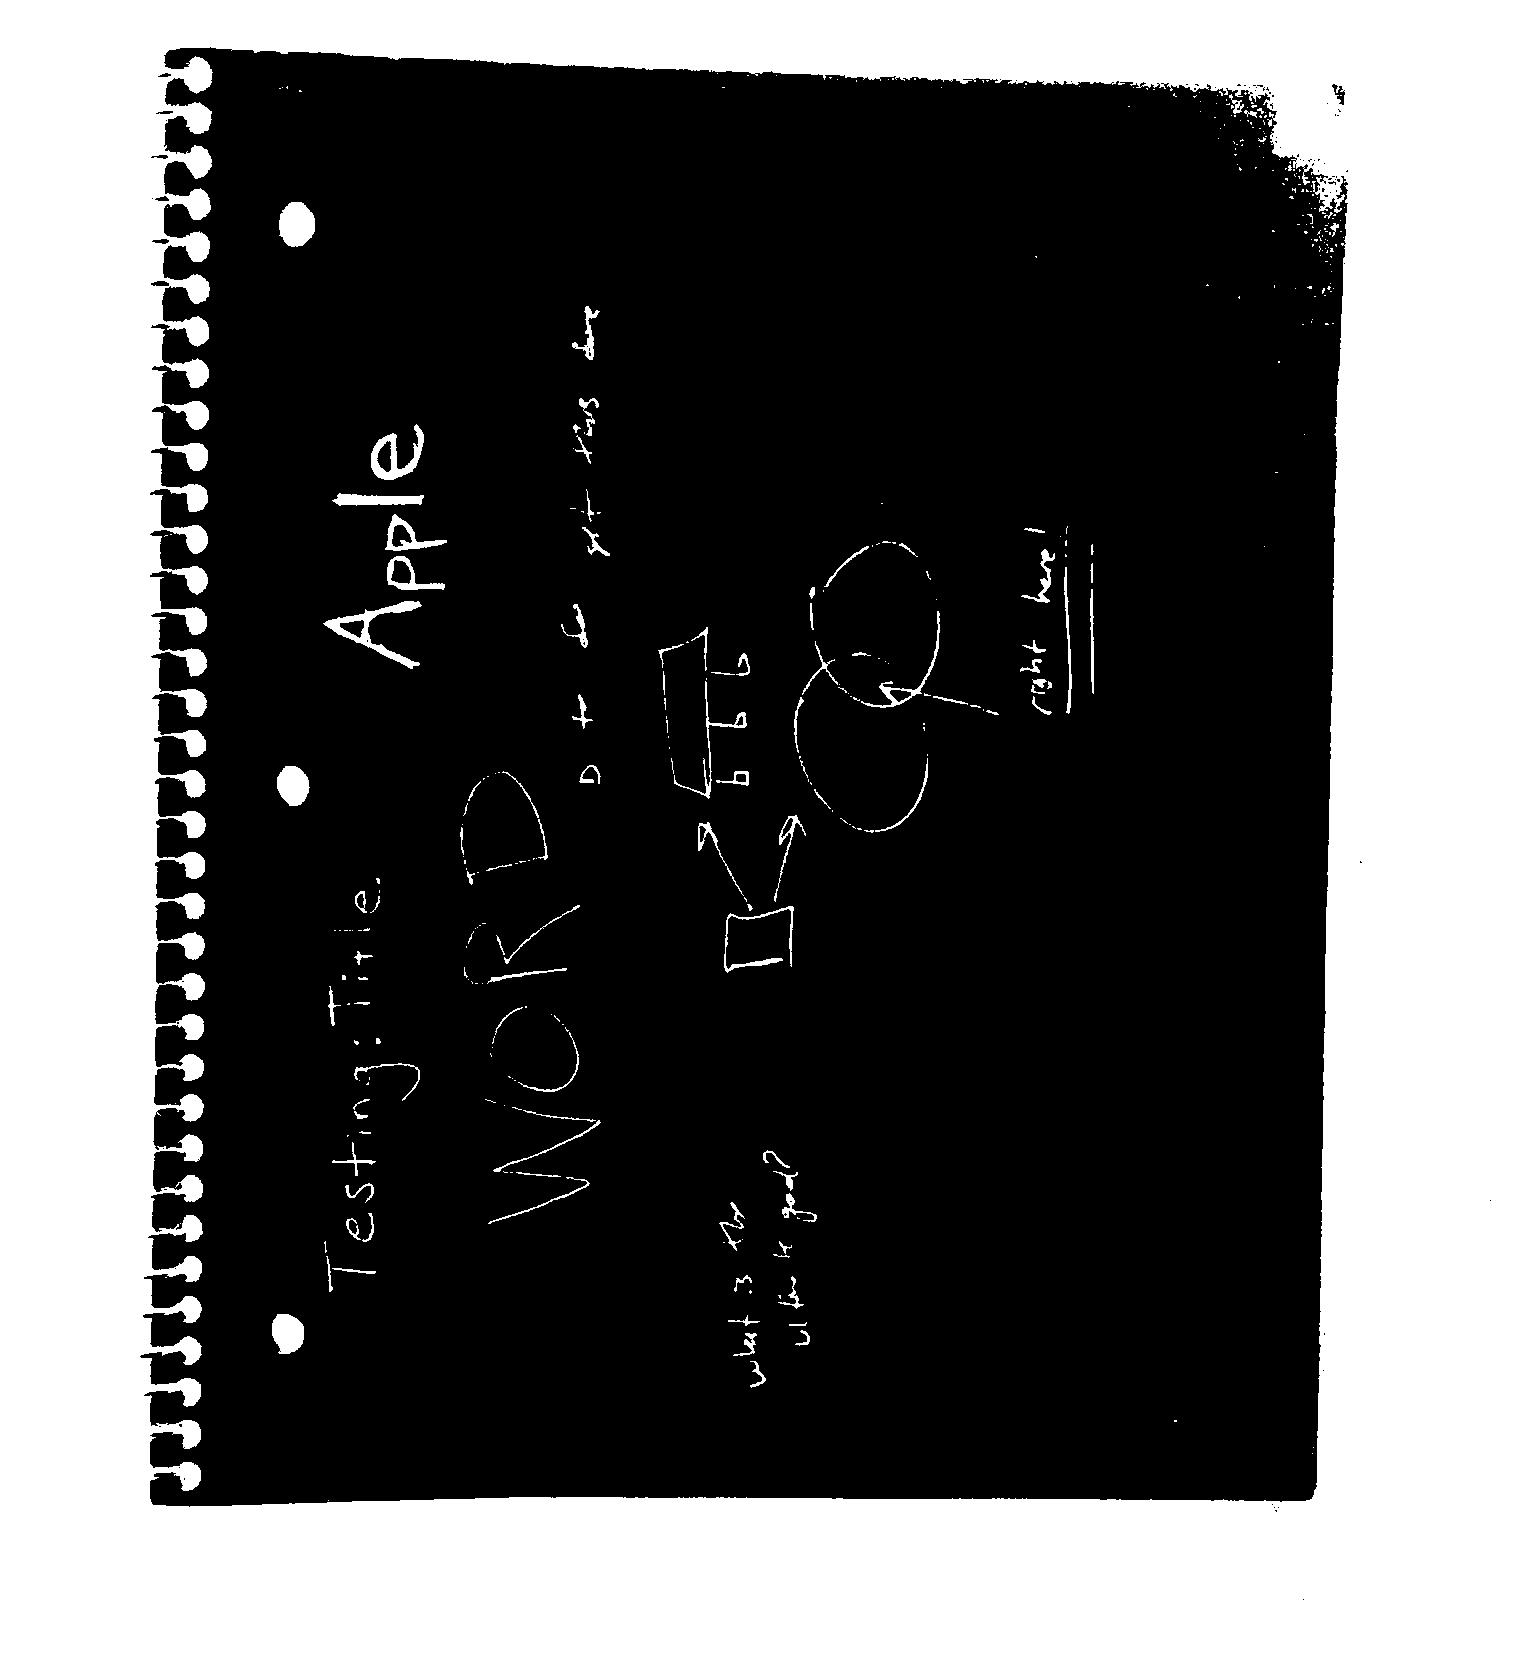 Testing: Title
Apple
WORD
D to do get this done
what is the
ultimate goal?
right here!